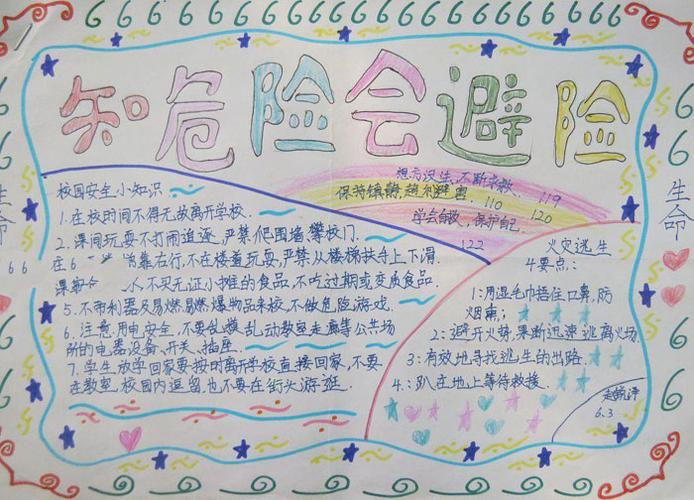 知危险会避险
生命
校园安全小知识
1.在校时间不得无故离开学校.
2.课间玩耍不打闹追逐,严禁爬围墙,攀校门.
靠右行,不在楼道玩耍,严禁从楼梯扶手上下滑.
不买无证小摊的食品,不吃过期或变质食品.
5.不带利器及易燃易爆物品来校,不做危险游戏.
6.注意用电安全,不要乱摸乱动教室走廊等公共场
所的电器设备、开关、插座.
7.学生放学回家要按时离开学校直接回家,不要
在教室,校园内逗留,也不要在街头游逛.
不断求救. 119
保持镇静,趋利避害. 110
学会自救,保护自己. 120
122
火灾逃生
4要点:
1:用湿毛巾捂住口鼻,防
烟毒;
2:避开火势,果断迅速逃离火场.
3:有效地寻找逃生的出路.
4:趴在地上等待救援.
6.3
生命